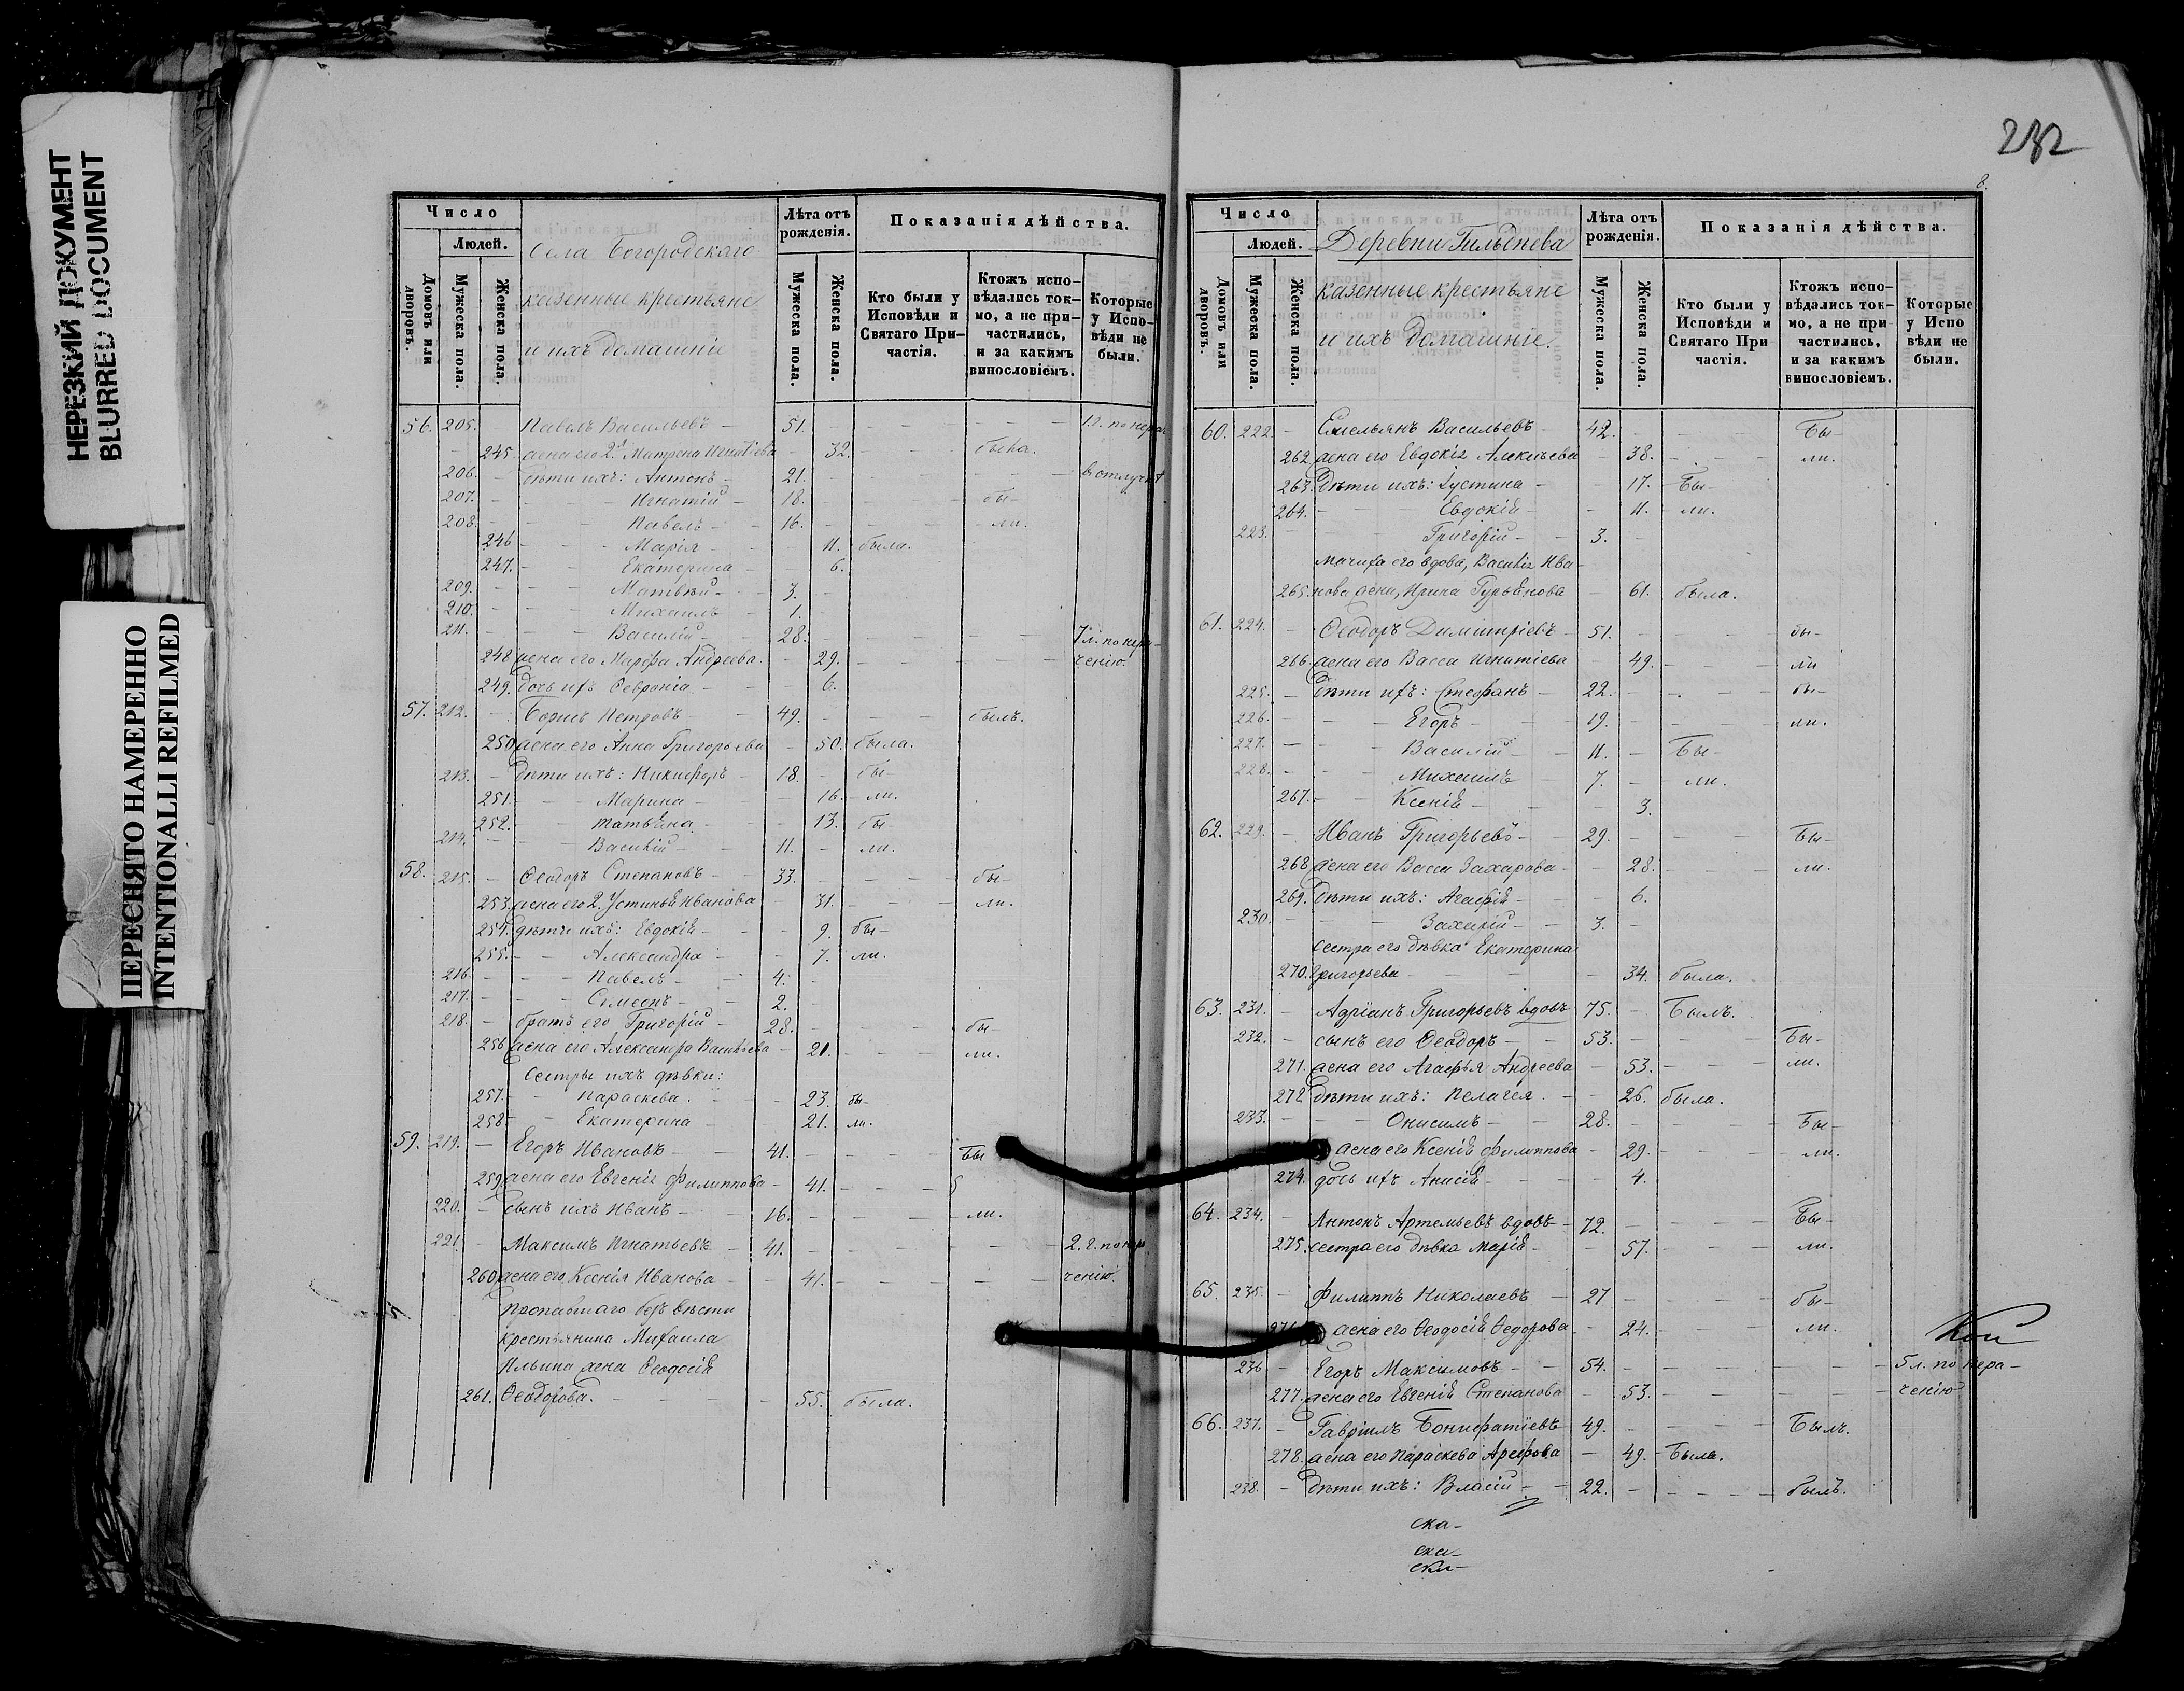 НЕРЕЗКИЙ ДОКУМЕНТ
BLURRED DOCUMENT
ПЕРЕСНЯТО НАМЕРЕННО
INTENTIONALLI REFILMED
Число
Людей.
Домовъ или дворовъ.
Мужеска пола.
Женска пола.
Села Богородскаго
казенные крестьяне
и ихъ домашніе
Лѣта отъ рожденія.
Мужеска пола.
Женска пола.
Показанія дѣйства.
Кто были у Исповѣди и Святаго При-частія.
Ктожъ испо-вѣдались ток-мо, а не при-частились, и за какимъ винословіемъ.
Которые у Испо-вѣди не были.
56. 205. - Павелъ Васильевъ - 51. - - - - 1 г. по нера
245. жена его 2. Матрена Игнатіева - 32. - - была.
206. - дѣти ихъ: Антонъ - 21. - - - - в отлучкѣ
207. - - - Игнатій - 18. - - - бы-
208. - - - Павелъ - 16. - - - ли.
246 - - Марія - - 11. была.
247. - - Екатерина - - 6.
209. - - Матвѣй - 3. -
210. - - Михаилъ 1.
211. - - - Василій - 28. - - - - 7 л. по нера-
248 жена его Марѳа Андреева. - 29. - - - - ченію.
249. дочь ихъ Ѳевронія - - 6.
57. 212. - Борисъ Петровъ - 49. - - - былъ.
250 жена его Анна Григорьева - 50. была.
213. - дѣти ихъ: Никифоръ - 18. - бы-
251. - - Марина - - 16. - ли.
252. - - Татьяна - - 13. бы
214. - - - Василій - 11. - ли.
58. 215. - Ѳеодоръ Степановъ - 33. - - - бы-
253. жена его 2. Устинья Иванова - 31. - - - ли.
254. дѣти ихъ: Евдокія - - 9. бы-
255. - - Александра - - 7. ли.
216. - - - Павелъ - 4. -
217. - - - Семеонъ - 2.
218. - братъ его Григорій - 28. - - - бы-
256 жена его Александра Васильева - 21. - - - ли.
Сестры ихъ дѣвки:
257. - - Параскева. - - 23. бы-
258 - - Екатерина - - 21. ли.
59. 219. - Егоръ Ивановъ - 41. - - - Бы
259 жена его Евгенія Филиппова - 41. - - -
220. - сынъ ихъ Иванъ - 16. - - - ли.
221. - Максимъ Игнатьевъ - 41. - - - - 2. г. по нера
260 жена его Ксенія Иванова - - 41. - - - - ченію.
Пропавшаго безъ вѣсти
крестьянина Михаила
Ильина жена Ѳеодосія
261. Ѳеодорова. - - - 55. была.
282
8.
Число
Людей.
Домовъ или дворовъ.
Мужеска пола.
Женска пола.
Деревни Гильднева
казенные крестьяне
и ихъ домашніе.
Лѣта отъ рожденія.
Мужеска пола.
Женска пола.
Показанія дѣйства.
Кто были у Исповѣди и Святаго При частія.
Ктожъ испо-вѣдались ток-мо, а не при частились, и за какимъ винословіемъ.
Которые у Испо вѣди не были.
60. 222. - Емельянъ Васильевъ - 42. - - - Бы-
262 жена его Евдокія Алексѣева - 38. - - - ли.
263. Дѣти ихъ: Іустина - - 17. - Бы-
264. - - Евдокія - - 11. - ли.
223. - - - Григорій - - 3. -
мачиха его вдова, Василія Ива-
265. нова жена, Ирина Гурьянова - 61. была.
61. 224. - Ѳеодоръ Димитріевъ - 51. - - - бы-
266. жена его Васса Игнатіева - 49. - - - ли
225. - Дѣти ихъ: Стефанъ - 22. - - - бы-
226. - - - Егоръ - - 19. - - - ли.
227. - - - Василій - - 11. - Бы-
228. - - - Михаилъ - 7. - ли.
267. - - Ксенія - - - 3.
62. 229. - Иванъ Григорьевъ - 29. - - - Бы-
268 жена его Васса Захарова - - 28. - - - ли.
269. дѣти ихъ: Агафія - - 6.
230. - - - Захарій - - 3. -
Сестра его дѣвка Екатерина
270. Григорьева - - - 34. была.
63. 231. - Адріанъ Григорьевъ вдовъ 75. - Былъ.
232. - сынъ его Ѳеодоръ - - 53. - - - Бы-
271. жена его Агафья Андреева - 53. - - - ли.
272 дѣти ихъ: Пелагея. - - 26. была.
233. - - - Онисимъ - - 28. - - - - Бы-
жена его Ксенія Филиппова - 29. - - - - ли.
274. дочь ихъ Анисія - - - 4.
64. 234. - Антонъ Артемьевъ вдовъ - 72. - - - - Бы-
275. сестра его дѣвка Марія - - 57. - - - ли.
65. 235. - Филиппъ Николаевъ - 27 - - - - бы-
жена его Ѳеодосія Ѳедорова - - 24. - - - ли.
236 - Егоръ Максимовъ - - 54. - - - - 5 л. по нера-
277. жена его Евгенія Степанова - 53. - - - - ченію
66. 237. - Гавріилъ Бонифатіевъ 49. - - - - Былъ.
278. жена его Параскева Арефова - 49. - Была.
238. - дѣти ихъ: Власій - - 22. - - - - былъ.
ска-
ска-
ска-